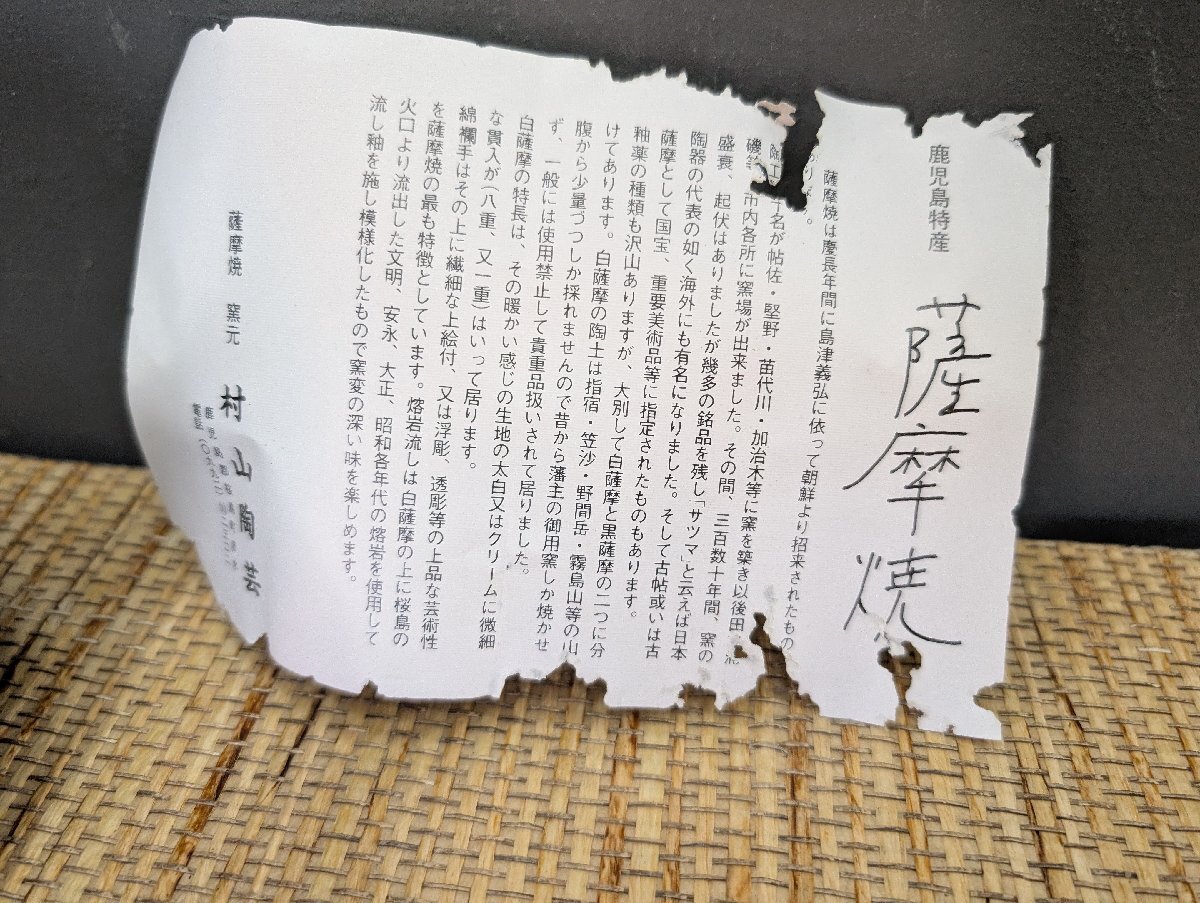 鹿児島特産
薩摩焼
薩摩焼は慶長年間に島津義弘に依って朝鮮より招来されたもの
陶工 十名が帖佐・堅野・苗代川・加治木等に窯を築き以後田
磯等 市内各所に窯場が出来ました。その間、三百数十年間、窯の
盛衰、起伏はありましたが幾多の銘品を残し「サツマ」と云えば日本
陶器の代表の如く海外にも有名になりました。そして古帖或いは古
薩摩として国宝、重要美術品等に指定されたものもあります。
釉薬の種類も沢山ありますが、大別して白薩摩と黒薩摩の二つに分
けてあります。白薩摩の陶土は指宿・笠沙・野間岳・霧島山等の山
腹から少量づつしか採れませんので昔から藩主の御用窯しか焼かせ
ず、一般には使用禁止して貴重品扱いされて居りました。
白薩摩の特長は、その暖かい感じの生地の太白又はクリームに微細
な貫入が(八重、又一重)はいって居ります。
綿襴手はその上に繊細な上絵付、又は浮彫、透彫等の上品な芸術性
を薩摩焼の最も特徴としています。熔岩流しは白薩摩の上に桜島の
火口より流出した文明、安永、大正、昭和各年代の熔岩を使用して
流し釉を施し模様化したもので窯変の深い味を楽しめます。
薩摩焼 窯元 村山陶芸
鹿児島
電話(〇九九二)